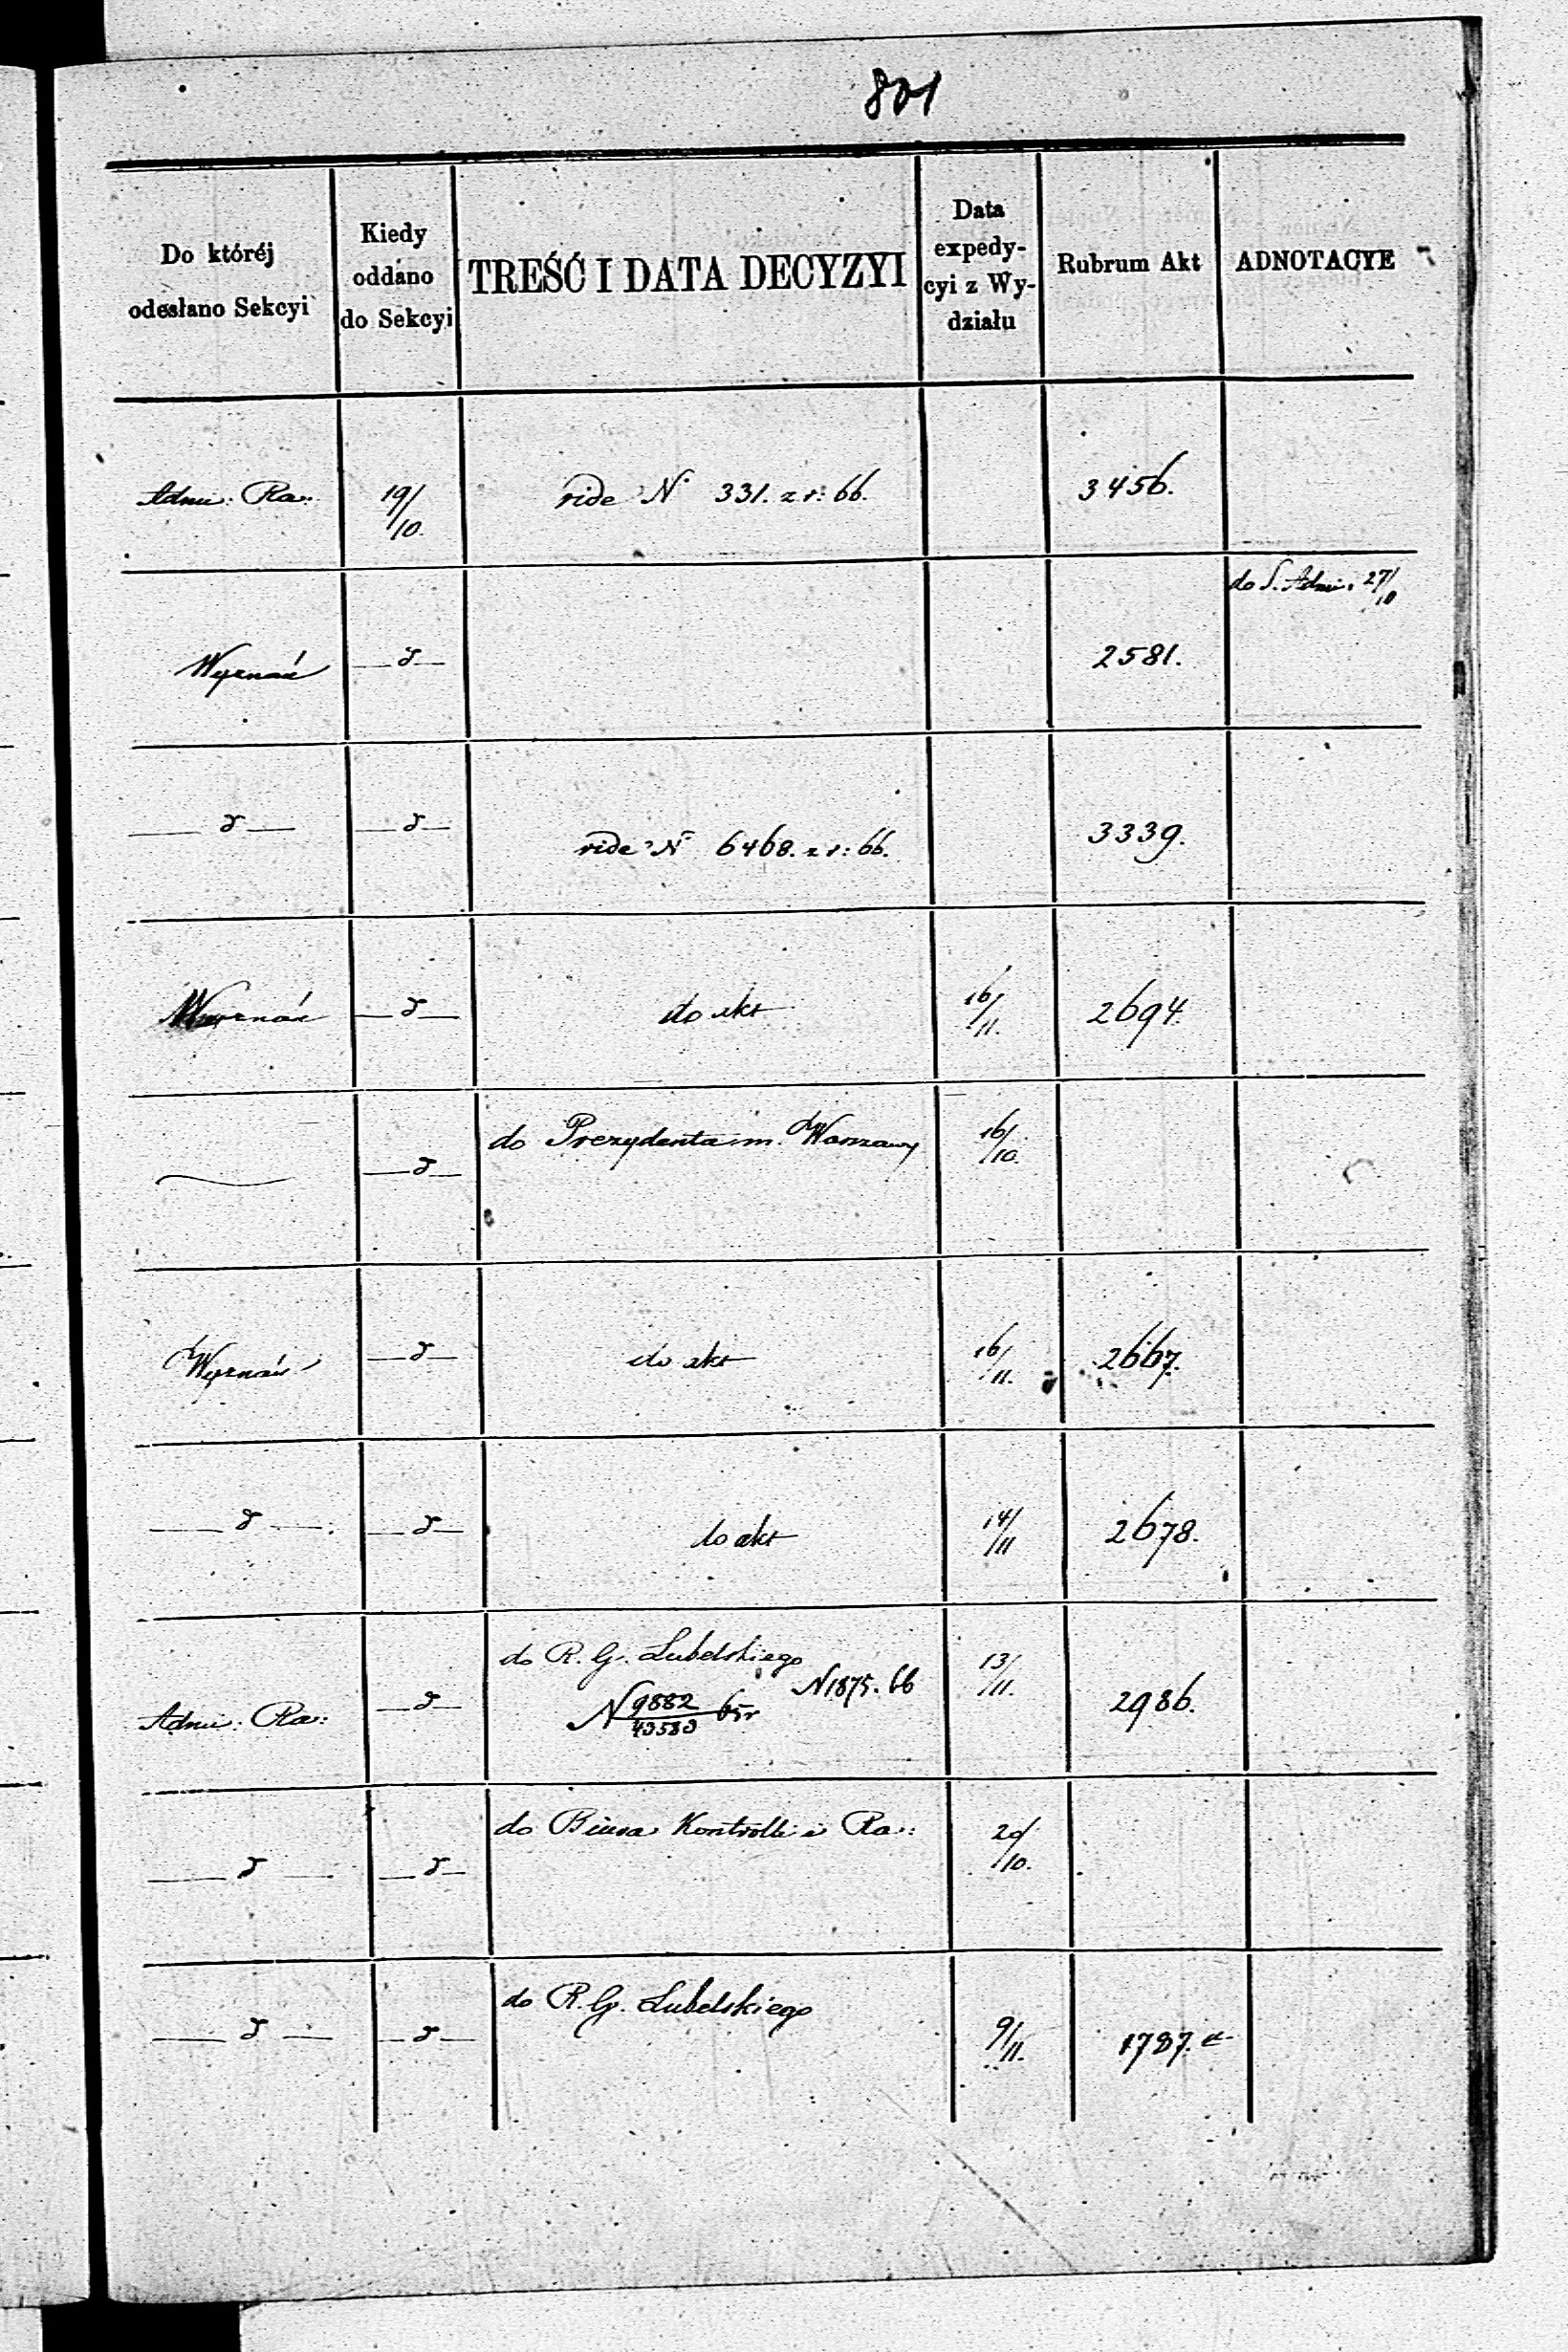 801
Do któréj
odesłano Sekcyi
Kiedy
oddano
do Sekcyi
TREŚĆ I DATA DECYZYI
Data
expedy-
cyi z Wy-
działu
Rubrum Akt
ADNOTACYE
Adm: Ra:
19/10.
vide N° 331. z r: 66.
3456.
do S. Adm: 27/10
Wyznań
—d—
2581.
—d—
—d—
vide N° 6468. z r: 66.
3339.
Wyznań
—d—
do akt
16/11.
2694.
—d—
do Prezydenta m. Warszawy
16/10.
Wyznań
—d—
do akt
16/11.
2667.
—d—
—d—
do akt
14/11
2678.
Adm: Ra:
—d—
do R. G. Lubelskiego
N 1875. 66
N 9882/43583 65r
13/11.
2986.
—d—
—d—
do Biura Kontrolli i Ra:
20/10.
—d—
—d—
do R. G. Lubelskiego
9/11.
1787.